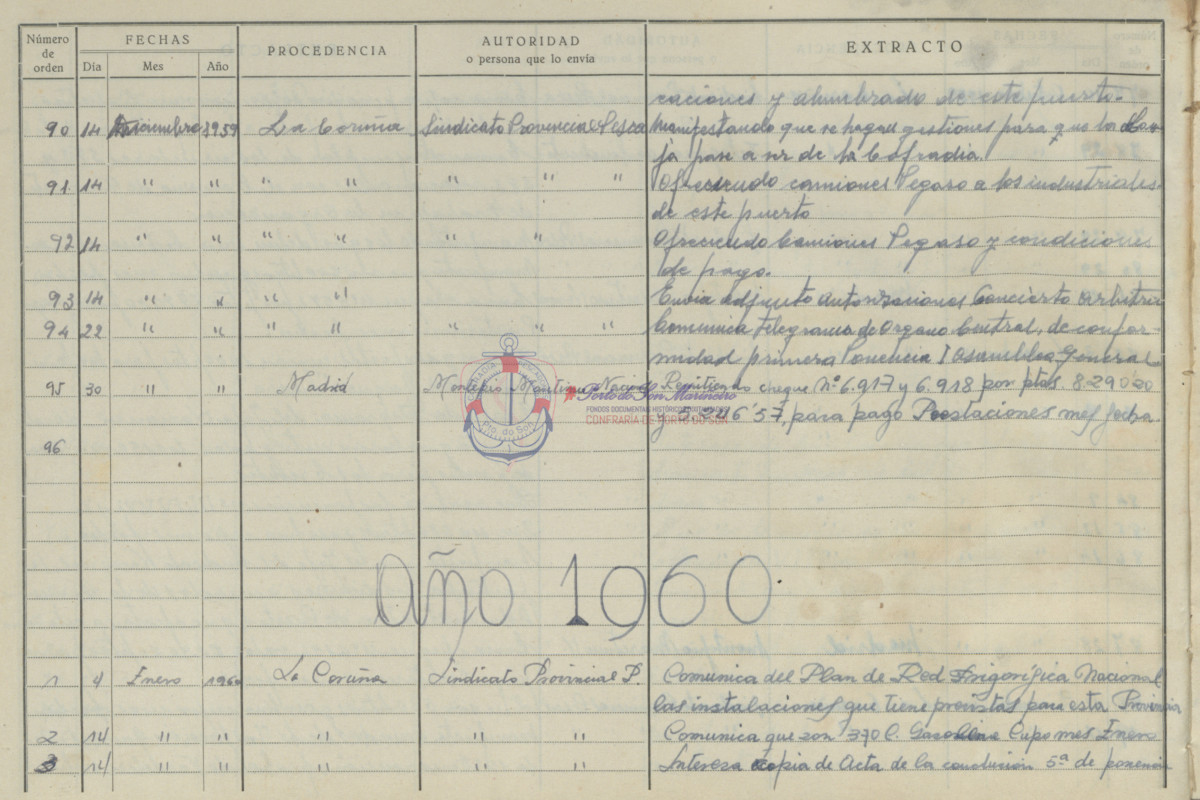 Número de orden FECHAS PROCEDENCIA AUTORIDAD o persona que lo envía EXTRACTO
Día Mes Año
caciones y alumbrado de este puerto.
90 14 1959 La Coruña Sindicato Provincial Pesca Manifestando que se hagan gestiones para que la Lon-
ja pase a ser de la Cofradia.
91 14 " " " " " " " Ofreciendo camiones Pegaso a los industriales
de este puerto
92 14 " " " " " " Ofreciendo Camiones Pegaso y condiciones
de pago.
93 14 " " " " Envia adjunto autorizaciones Concierto arbitrio
94 22 " " " " " " " Comunica telegrama de Organo Central, de confor-
midad primera Ponencia I Asamblea General
95 30 " " Madrid Montepio Maritimo Nacio. Remitiendo cheque Nº 6.917 y 6.918 por ptas. 8.290'00
Porto do Son Marineiro
FONDOS DOCUMENTAIS HISTÓRICOS
CONFRARÍA DE PORTO DO SON
Pto. do Son
y 5.246'57, para pago Prestaciones mes fecha.
96
Año 1960
1 4 Enero 1960 La Coruña Sindicato Provincial P. Comunica del Plan de Red Frigorífica Nacional
las instalaciones que tiene previstas para esta Provincia
2 14 " " " " " Comunica que son 370 l. Gasolina Cupo mes Enero
3 14 " " " " " Interesa copia de Acta de la conclusión 5ª de ponencia